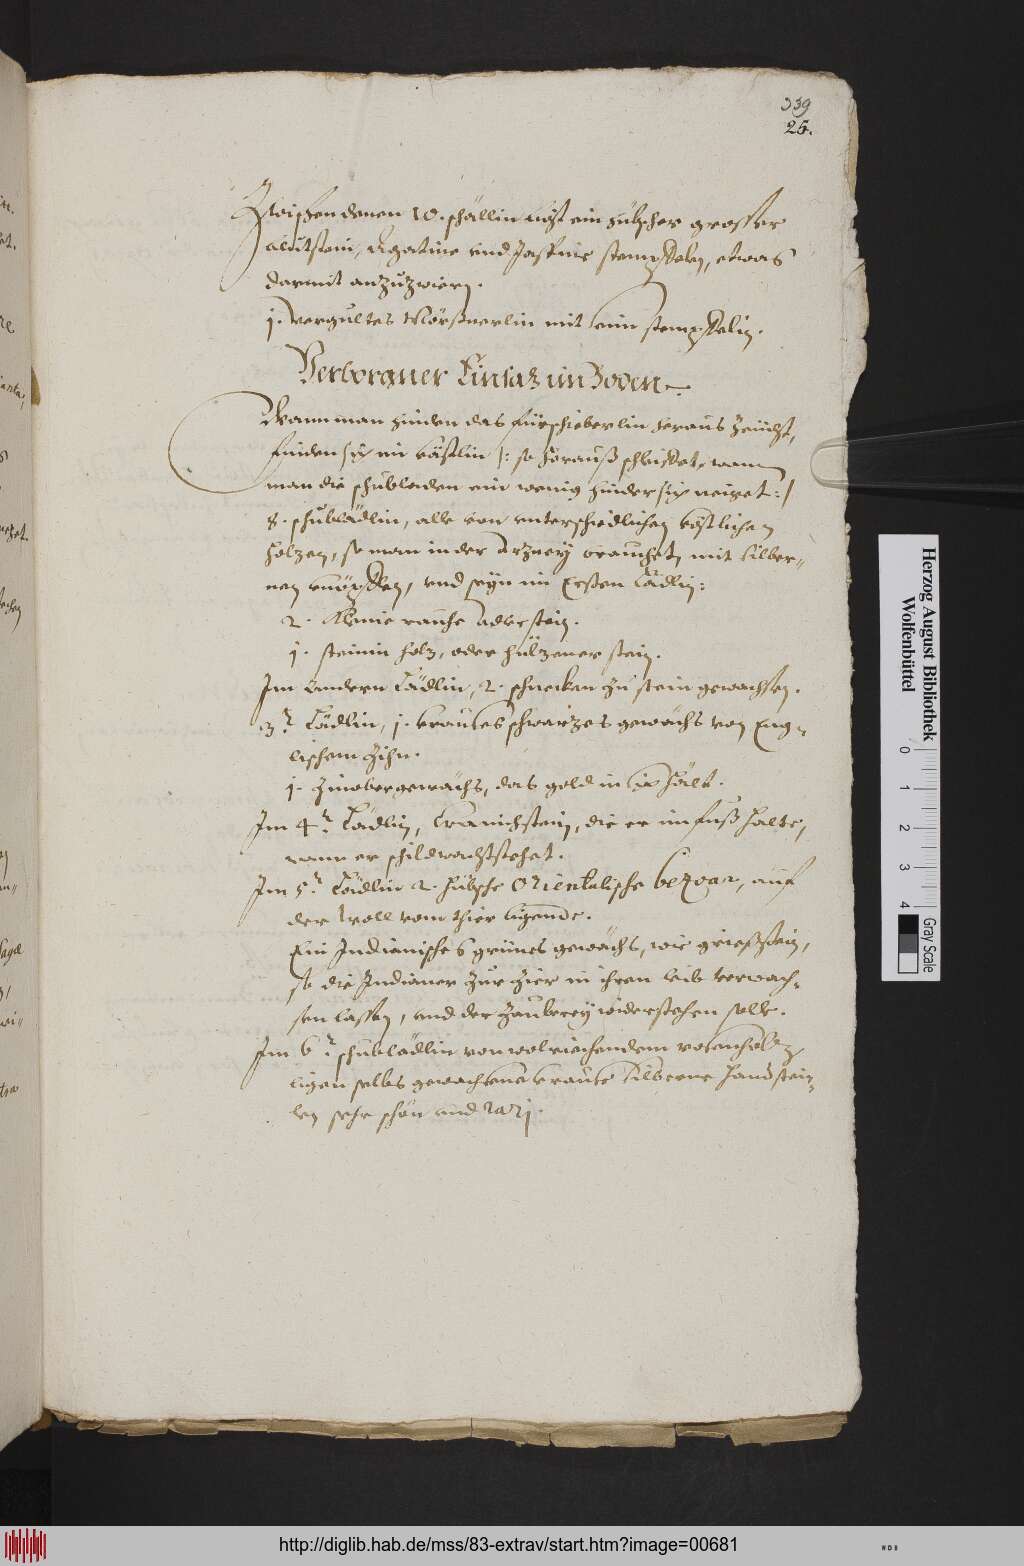 339
25.
Zwischen denen 10. schällin ligt ein hübscher grosser
aultstein, Agatine vnd Jaspine stempffelen, etwas
darmit anzuzwieren.
j. vergultes Mörßnerlin mit seim stempffelin.
Verborgner Einsaz im Boden.
Wann man hinden das fürschieberlin heraus zeücht,
finden sich im kästlin /: so herauß schlupffet, wann
man die schubladen ein wenig hindersich neiget: /
8. schublädlin, alle von vnterschiedlichen köstlichen
holzen, so man in der Arzney brauchet, mit silber-
nen knöpfflen, vnd seyn im Ersten Lädlin:
2. Kleine rauhe Adlerstein.
j. steinin holz, oder hülzener stein.
Im andern Lädlin, 2. schnecken zu stein gewachsen.
3. Lädlin, j. krautes schwarzes gewächs von Eng-
lischem Zihn.
j. Zinobergewächs, das gold in sich hält.
Im 4. Lädlin, Cranichstein, die er im fuß halte,
wann er schildwacht stehet.
Im 5. Lädlin 2. hübsche Orientalische bezoar, auf
der woll vom thier ligende.
Ein Indianisches grünes gewächs, wie grießstein,
so die Indianer zur zier in ihren leib verwach-
sen lassen, vnd der Zauberey widerstehen solle.
Im 6. schublädlin von wolriechendem rosenholz
ligen selbs gewachsene krause silberne handstein-
len sehr schön vnd rarj.
Herzog August Bibliothek
Wolfenbüttel
0 1 2 3 4
Gray Scale
http://diglib.hab.de/mss/83-extrav/start.htm?image=00681